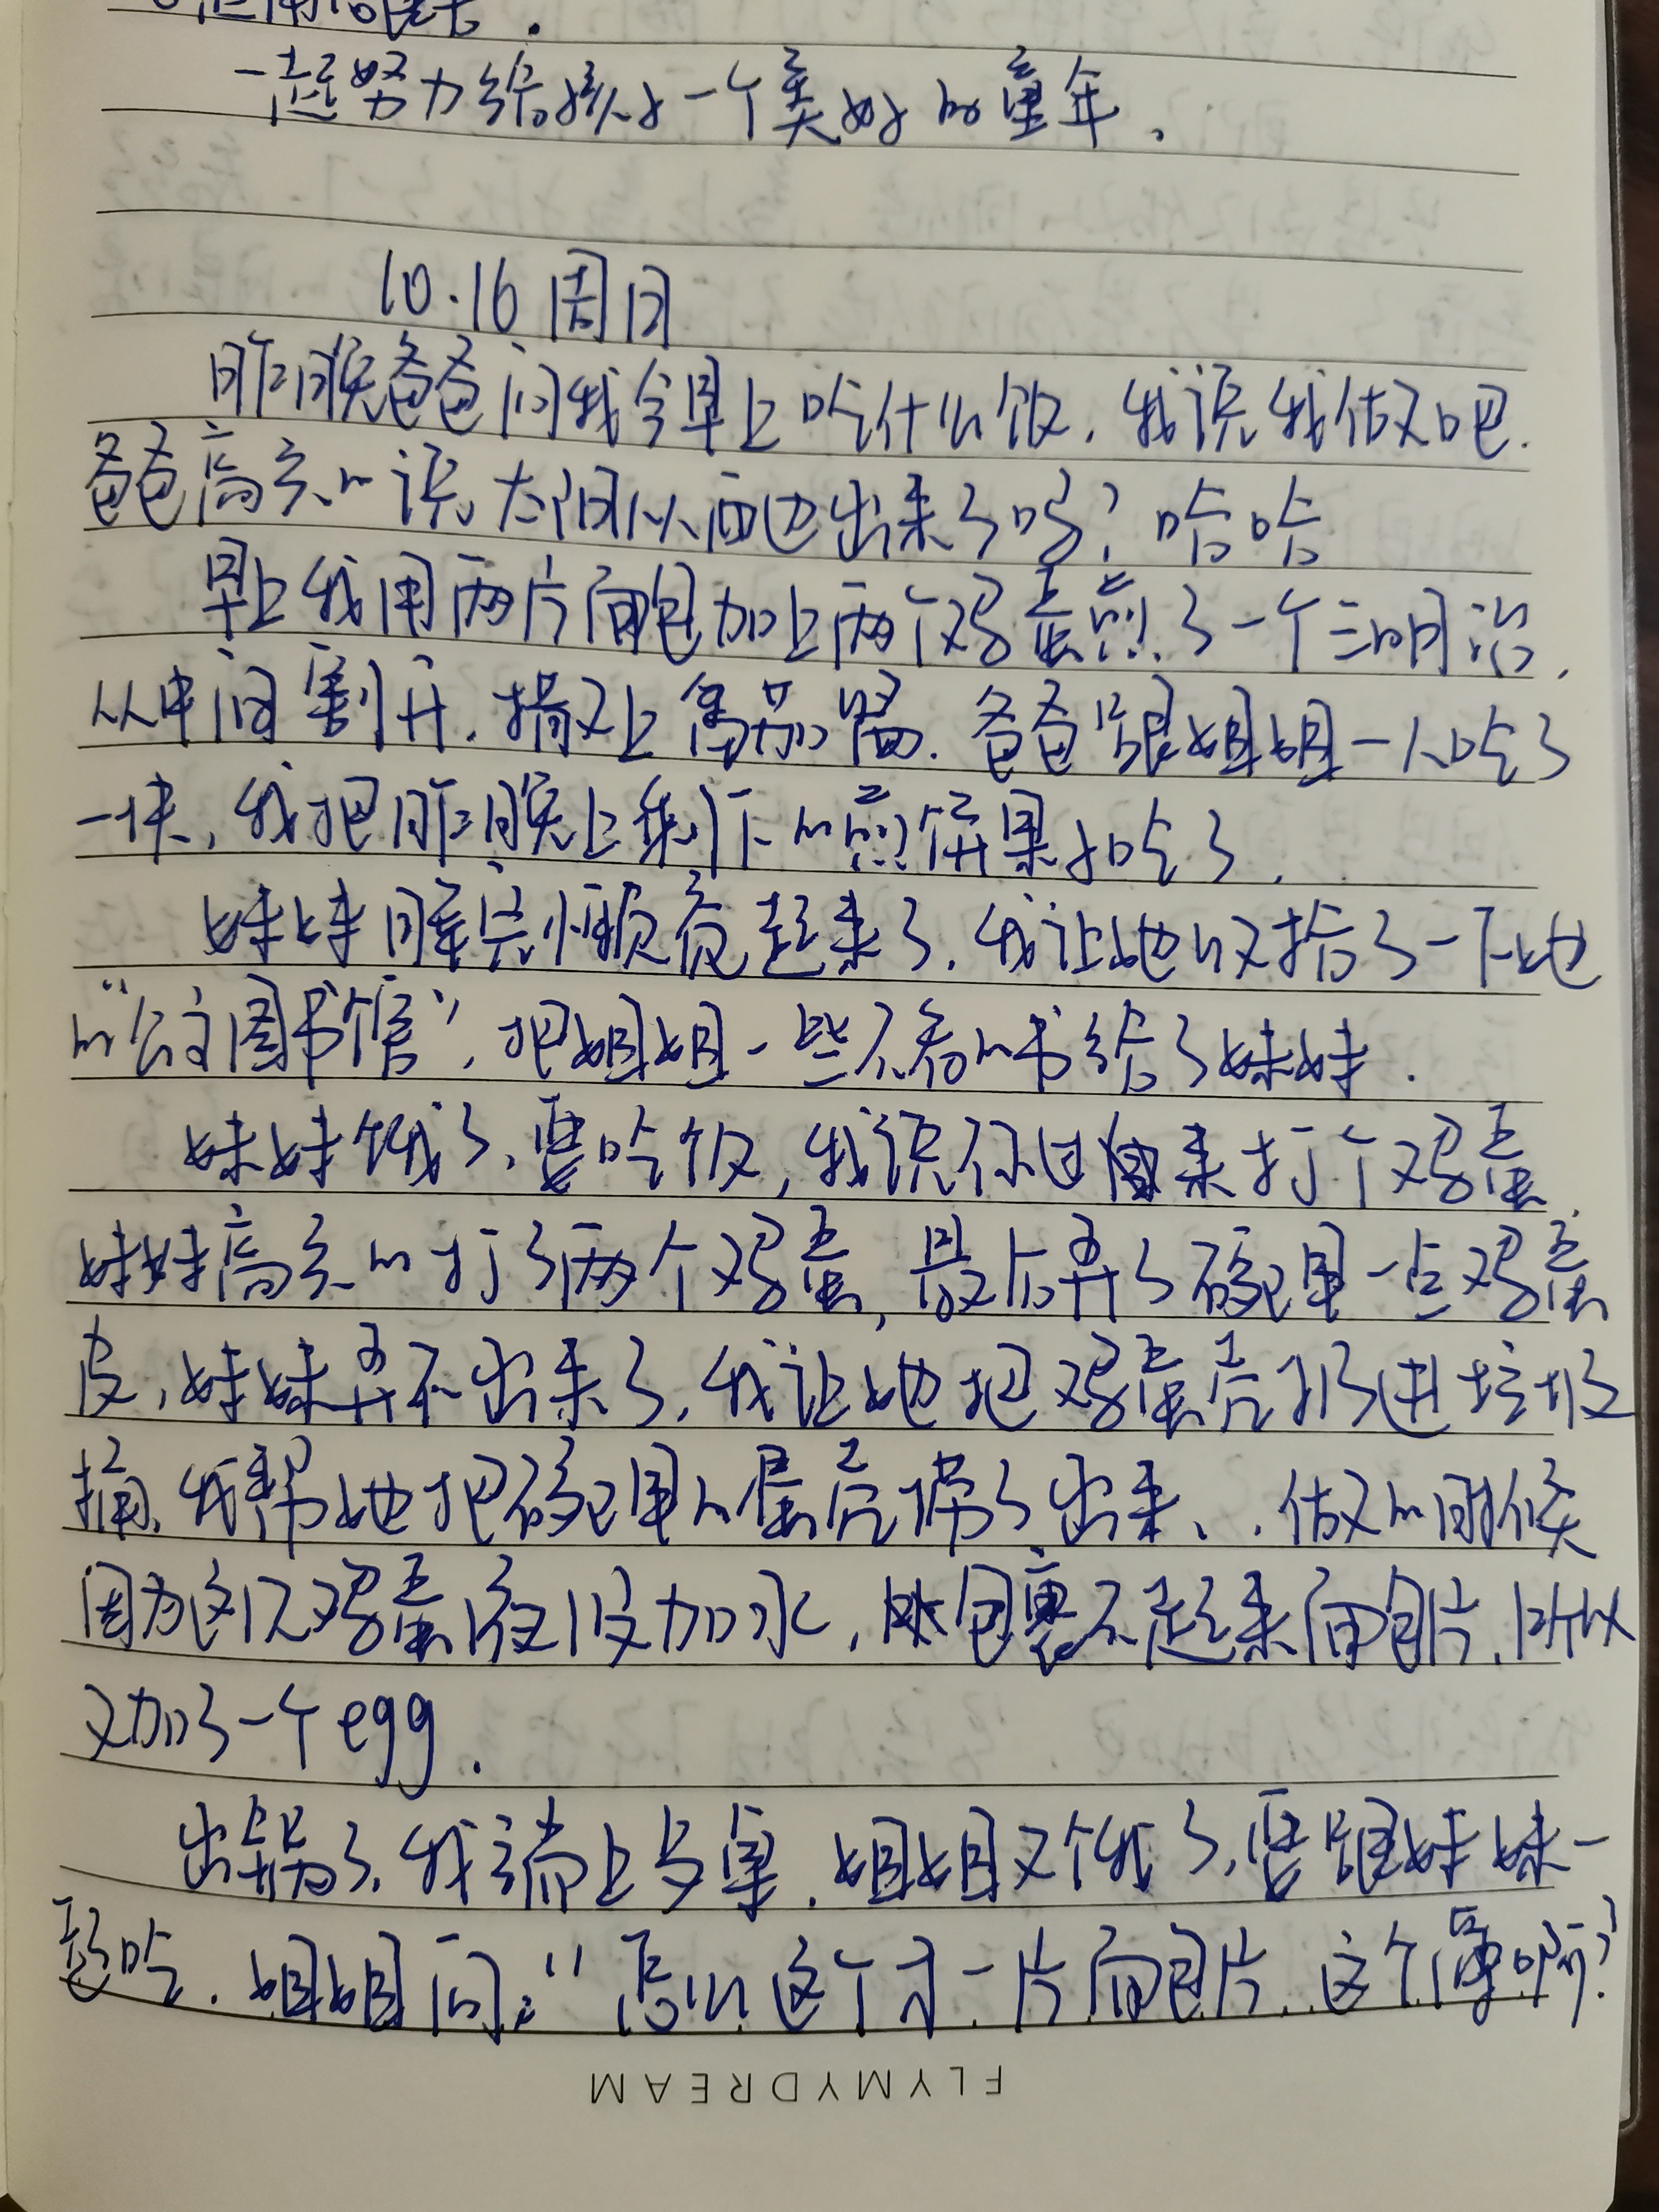 一起努力给孩子一个美好的童年.
10.16 周日
昨晚爸爸问我今早上吃什么饭,我说我做吧.
爸爸高兴的说,太阳从西边出来了吗?哈哈
早上我用两片面包加上两个鸡蛋煎了一个三明治,
从中间割开,搞上 爸爸跟姐姐一人吃了
一块,我把昨晚上剩下的煎饼果子吃了.
妹妹睡完懒觉起来了,我让她收拾了一下她
的“公主图书馆”,把姐姐一些不看的书给了妹妹.
妹妹饿了,要吃饭,我说你过来打个鸡蛋,
妹妹高兴的打了两个鸡蛋,最后弄了碗里一点鸡蛋
皮,妹妹弄不出来了,我让她把鸡蛋壳扔进垃圾
桶,我帮她把碗里的蛋壳弄了出来、.做的时候
因为这次鸡蛋液没加水,包裹不起来面包片,所以
又加了一个egg.
出锅了,我端上桌,姐姐又饿了,要跟妹妹一
起吃.姐姐问:“怎么这个才一片面包片,这个薄啊?
FLYMYDREAM